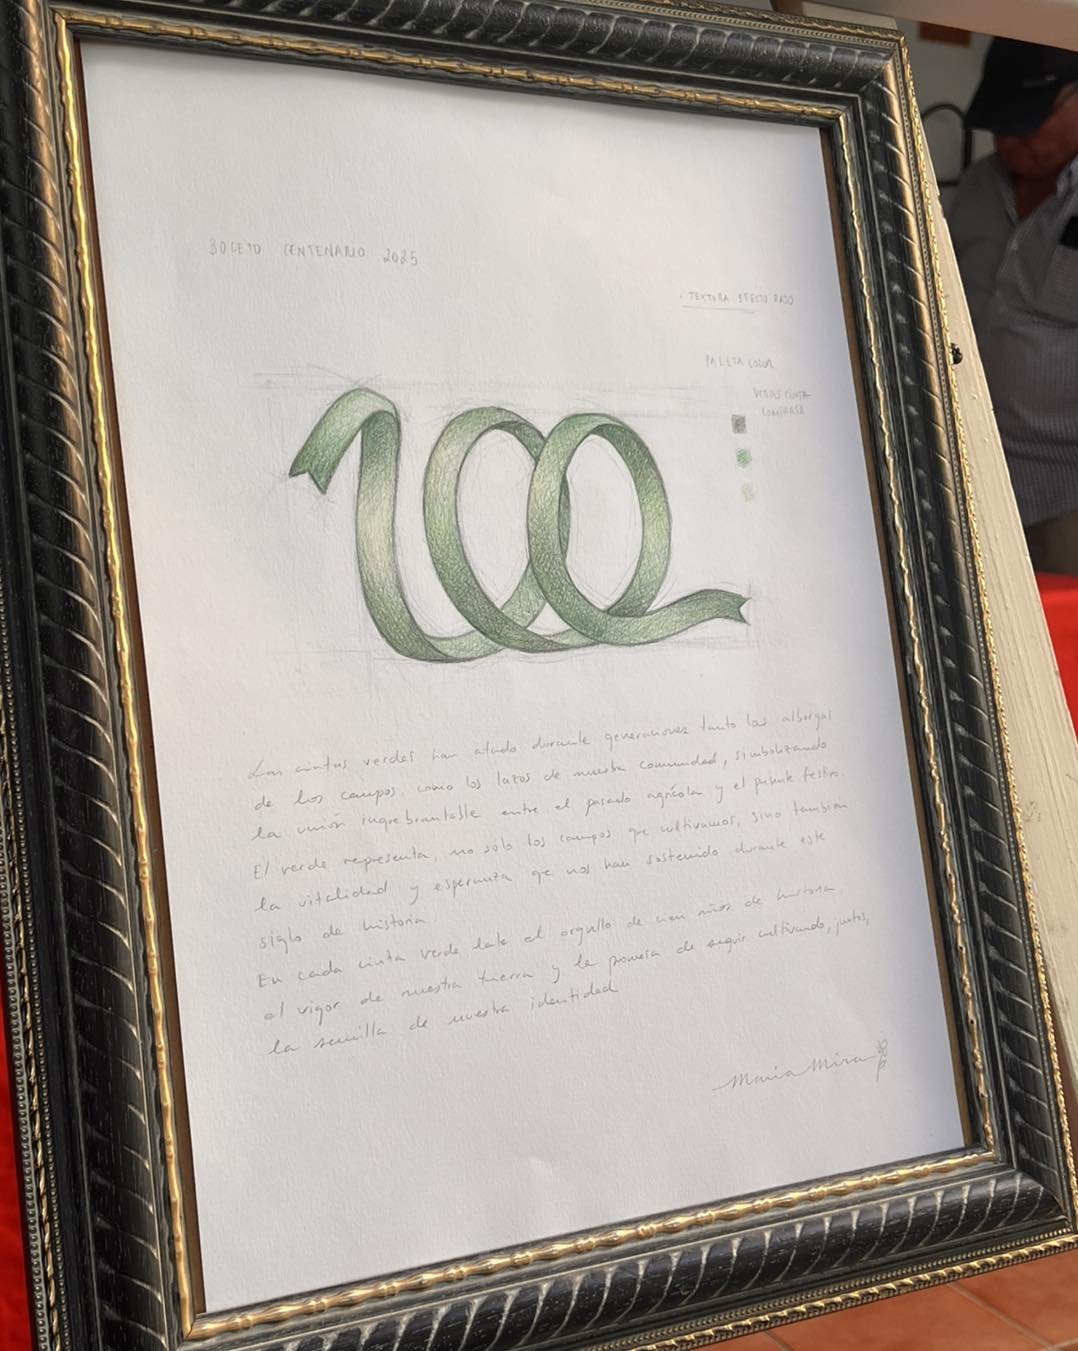 BOCETO CENTENARIO 2025
· TEXTURA EFECTO RASO
PALETA COLOR
VERDES CINTA
COMPARSA
Las cintas verdes han atado durante generaciones tanto las albargas
de los campos, como los lazos de nuestra comunidad, simbolizando
la unión inquebrantable entre el pasado agrícola y el presente festivo.
El verde representa, no sólo los campos que cultivamos, sino también
la vitalidad y esperanza que nos han sostenido durante este
siglo de historia.
En cada cinta verde late el orgullo de cien años de historia,
el vigor de nuestra tierra y la promesa de seguir cultivando, juntos,
la semilla de nuestra identidad
María Mira